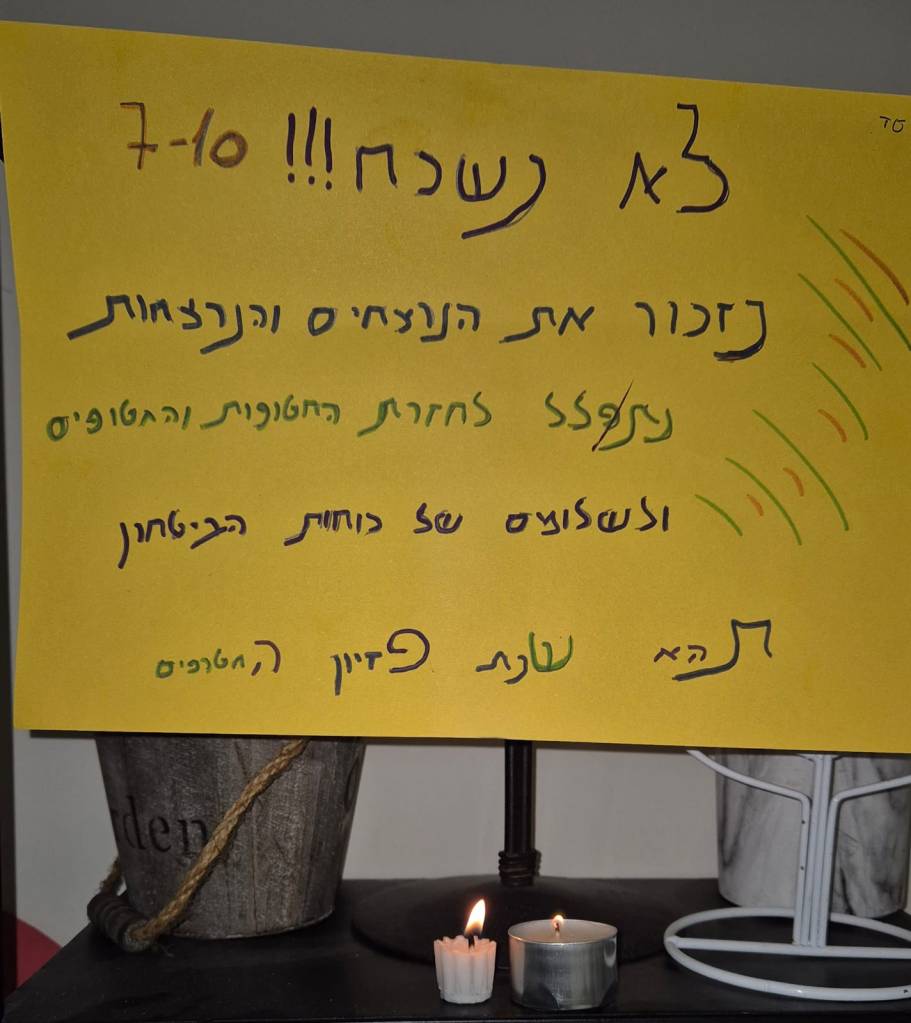 סד
לא נשכח!!! 7-10
נזכור את הנרצחים והנרצחות
ניתפלל לחזרת החטופות והחטופים
ולשלומם של כוחות הביטחון
תהא שנת פדיון החטופים
rden